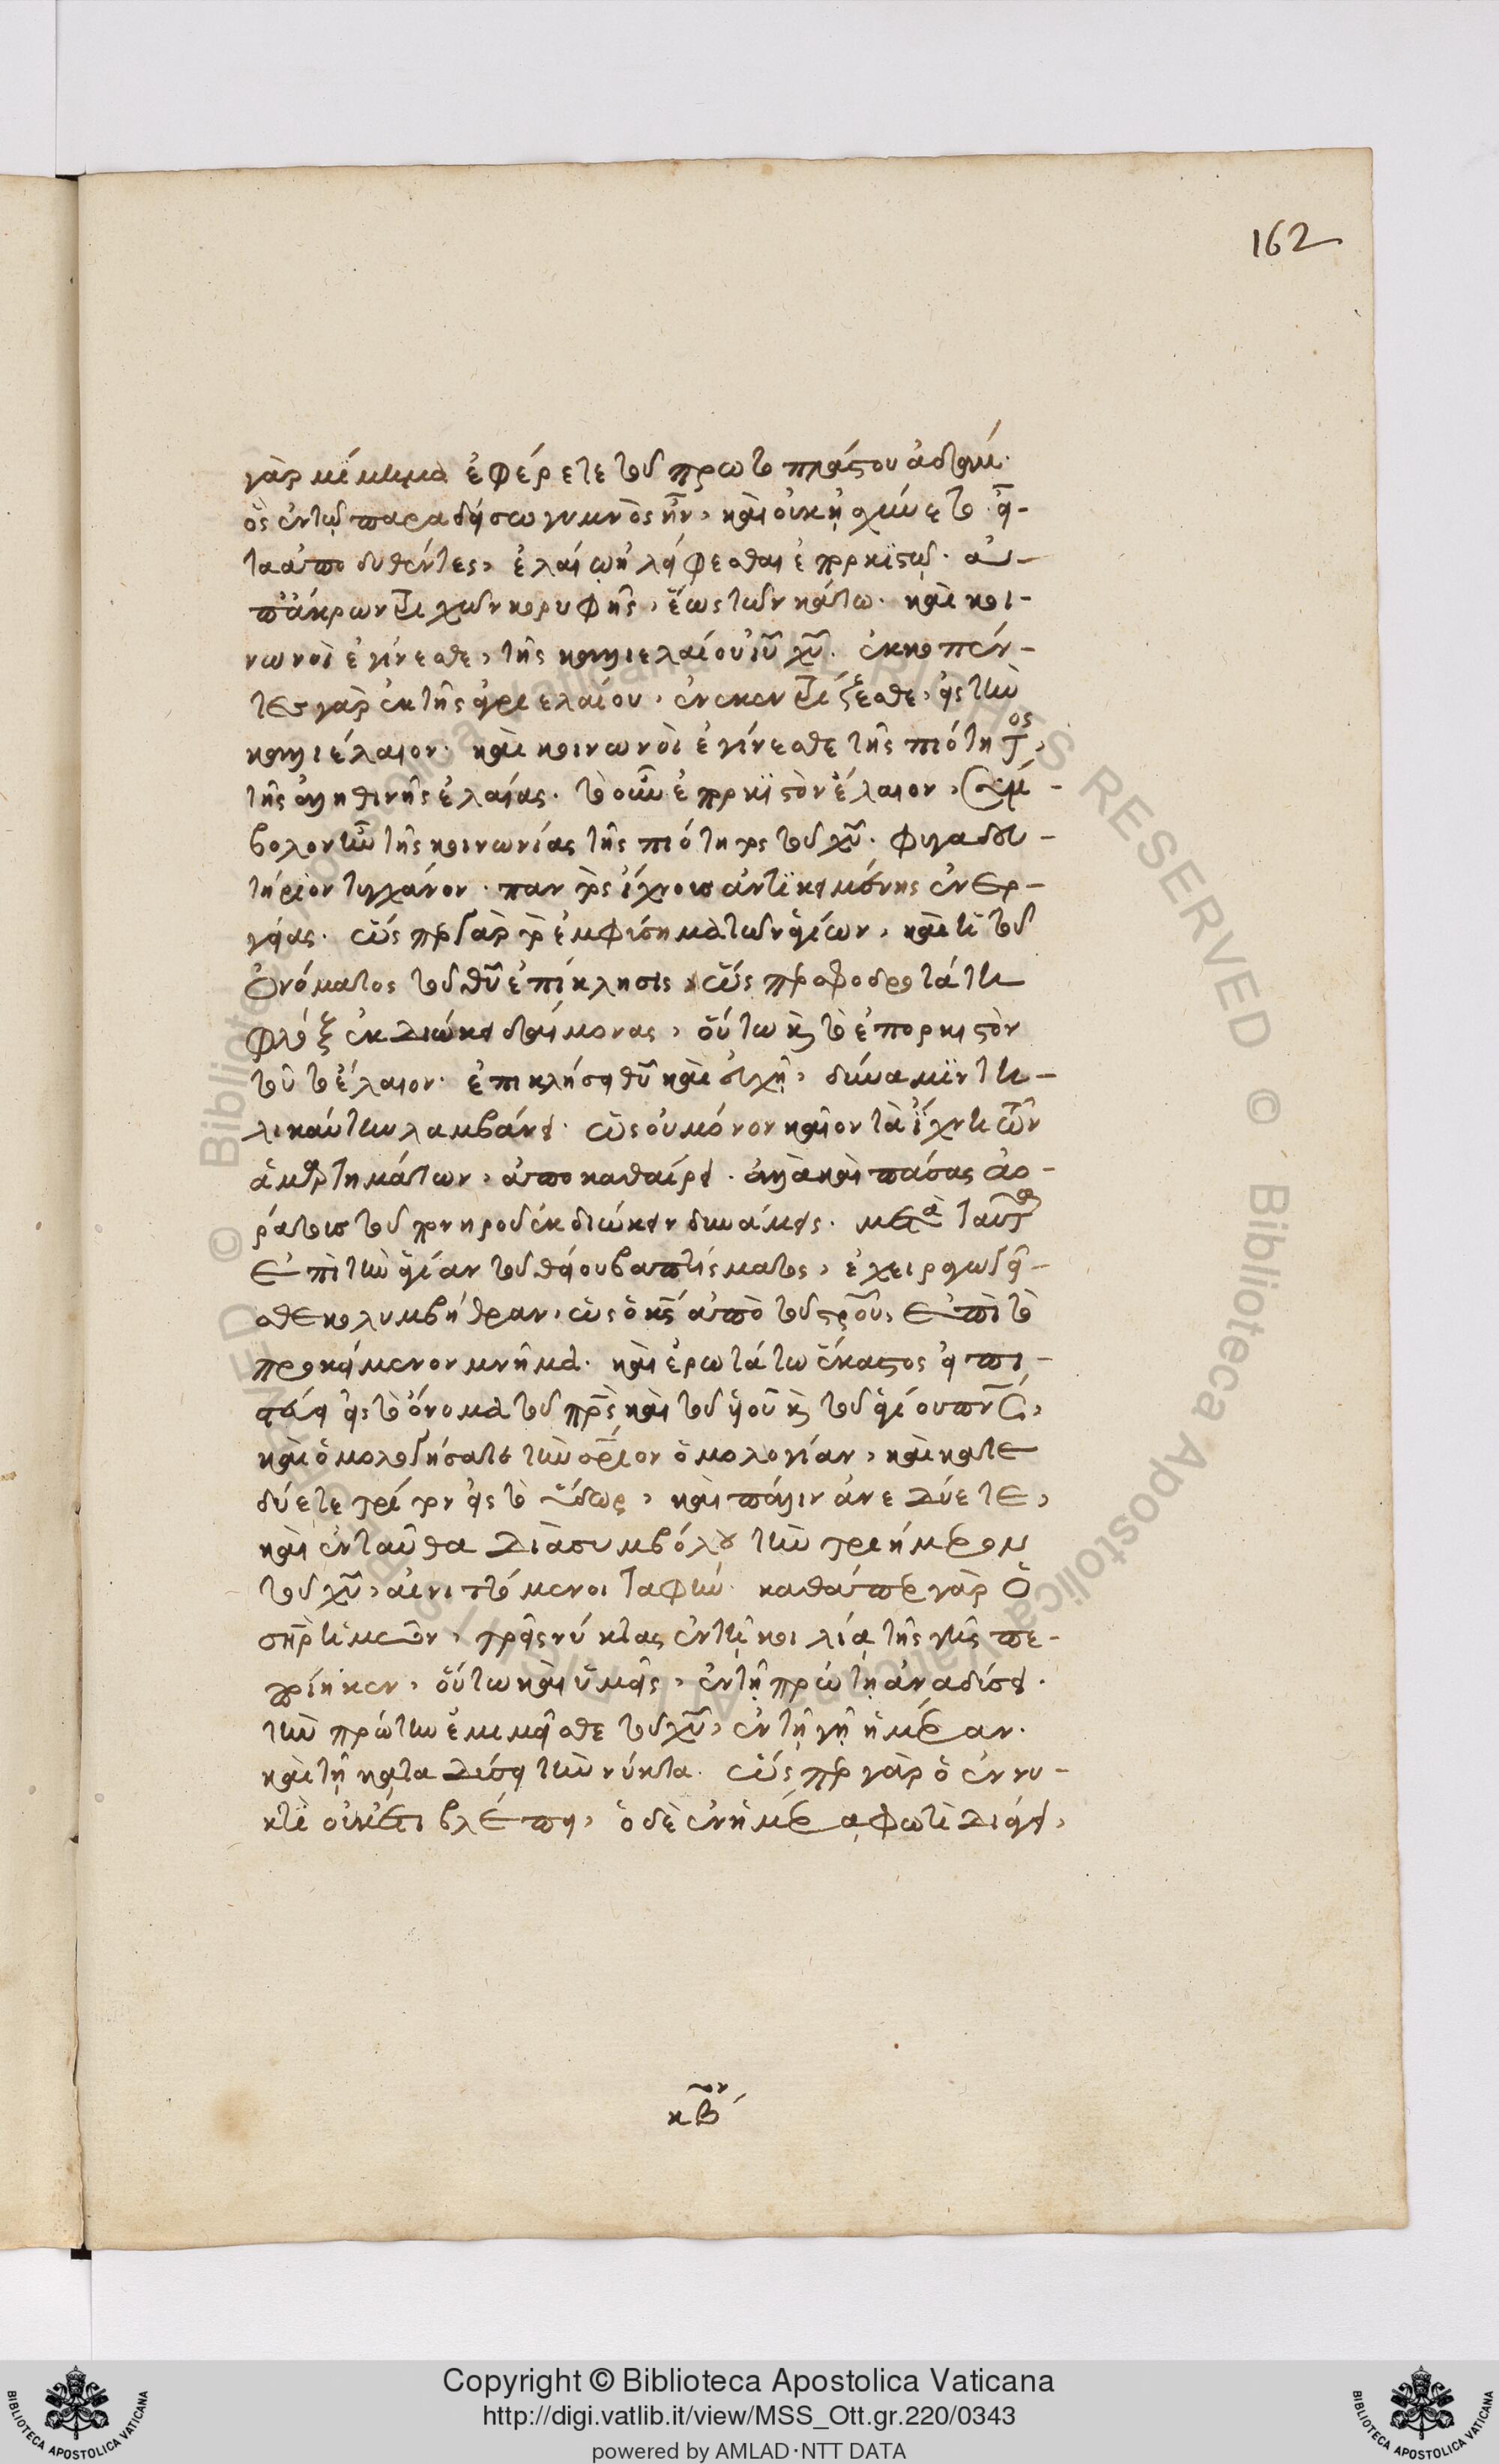 162
γὰρ μίμημα ἐφέρετε τοῦ πρωτοπλάστου ἀδάμ·
ὃς ἐν τῷ παραδείσω γυμνὸς ἦν, καὶ οὐκ ἠσχύνετο· εἶ-
τα ἀποδυθέντες, ἐλαίῳ ἠλείφεσθαι ἐπορκιστῷ· ἀ-
π' ἄκρων τριχῶν κορυφῆς, ἕως τῶν κάτω· καὶ κοι-
νωνοὶ ἐγίνεσθε, τῆς καλλιελαίου ἰυ χυ. ἐκκοπέν-
τες γὰρ ἐκ τῆς ἀγριελαίου, ἐνεκεντρίζεσθε, εἰς τὴν
καλλιέλαιον· καὶ κοινωνοὶ ἐγίνεσθε τῆς πιότητος,
τῆς ἀληθινῆς ἐλαίας. τὸ οὖν ἐπορκιστὸν ἔλαιον, σύμ-
βολον ἦν τῆς κοινωνίας τῆς πιότητος τοῦ χυ. φυγαδευ-
τήριον τυγχάνον· παντὸς ἴχνους ἀντικειμένης ἐνερ-
γείας. ὥσπερ γὰρ τὰ ἐμφυσήματα τῶν ἁγίων, καὶ ἡ τοῦ
ὀνόματος τοῦ θυ ἐπίκλησις, ὥσπερ σφοδροτάτη
φλὸξ ἐκδιώκει δαίμονας, οὕτω καὶ τὸ ἐπορκιστὸν
τοῦτο ἔλαιον· ἐπικλήσει θυ καὶ εὐχῇ, δύναμιν τη-
λικαύτην λαμβάνει· ὡς οὐ μόνον καῖον τὰ ἴχνη τῶν
ἁμαρτημάτων, ἀποκαθαίρει. ἀλλὰ καὶ πάσας ἀο-
ράτους τοῦ πονηροῦ ἐκδιώκειν δυνάμεις. μετὰ ταῦτα
ἐπὶ τὴν ἁγίαν τοῦ θείου βαπτίσματος, ἐχειραγωγεῖ-
σθε κολυμβήθραν, ὡς ὁ χς ἀπὸ τοῦ στρου, ἐπὶ τὸ
προκείμενον μνῆμα. καὶ ἐρωτάτω ἕκαστος εἰ πι-
στεύει εἰς τὸ ὄνομα τοῦ πρς καὶ τοῦ υἱοῦ καὶ τοῦ ἁγίου πνς,
καὶ ὁμολογήσατε τὴν σριον ὁμολογίαν, καὶ κατε
δύετε τρίτον εἰς τὸ ὕδωρ, καὶ πάλιν ἀνεδύετε,
καὶ ἐνταῦθα διὰ συμβόλου τὴν τριήμερον
τοῦ χυ, αἰνιττόμενοι ταφήν. καθάπερ γὰρ ὁ
σηρ ἡμῶν, τρεῖς νύκτας ἐν τῇ κοιλίᾳ τῆς γῆς πε-
ποίηκεν, οὕτω καὶ ὑμεῖς, ἐν τῇ πρώτῃ ἀναδύσει.
τὴν πρώτην ἐμιμεῖσθε τοῦ χυ, ἐν τῇ γῇ ἡμέραν.
καὶ τῇ καταδύσει τὴν νύκτα. ὥσπερ γὰρ ὁ ἐν νυ-
κτὶ οὐκέτι βλέπει, ὁ δὲ ἐν ἡμέρᾳ φωτὶ διάγει,
κβον
Copyright © Biblioteca Apostolica Vaticana
http://digi.vatlib.it/view/MSS_Ott.gr.220/0343
powered by AMLAD·NTT DATA